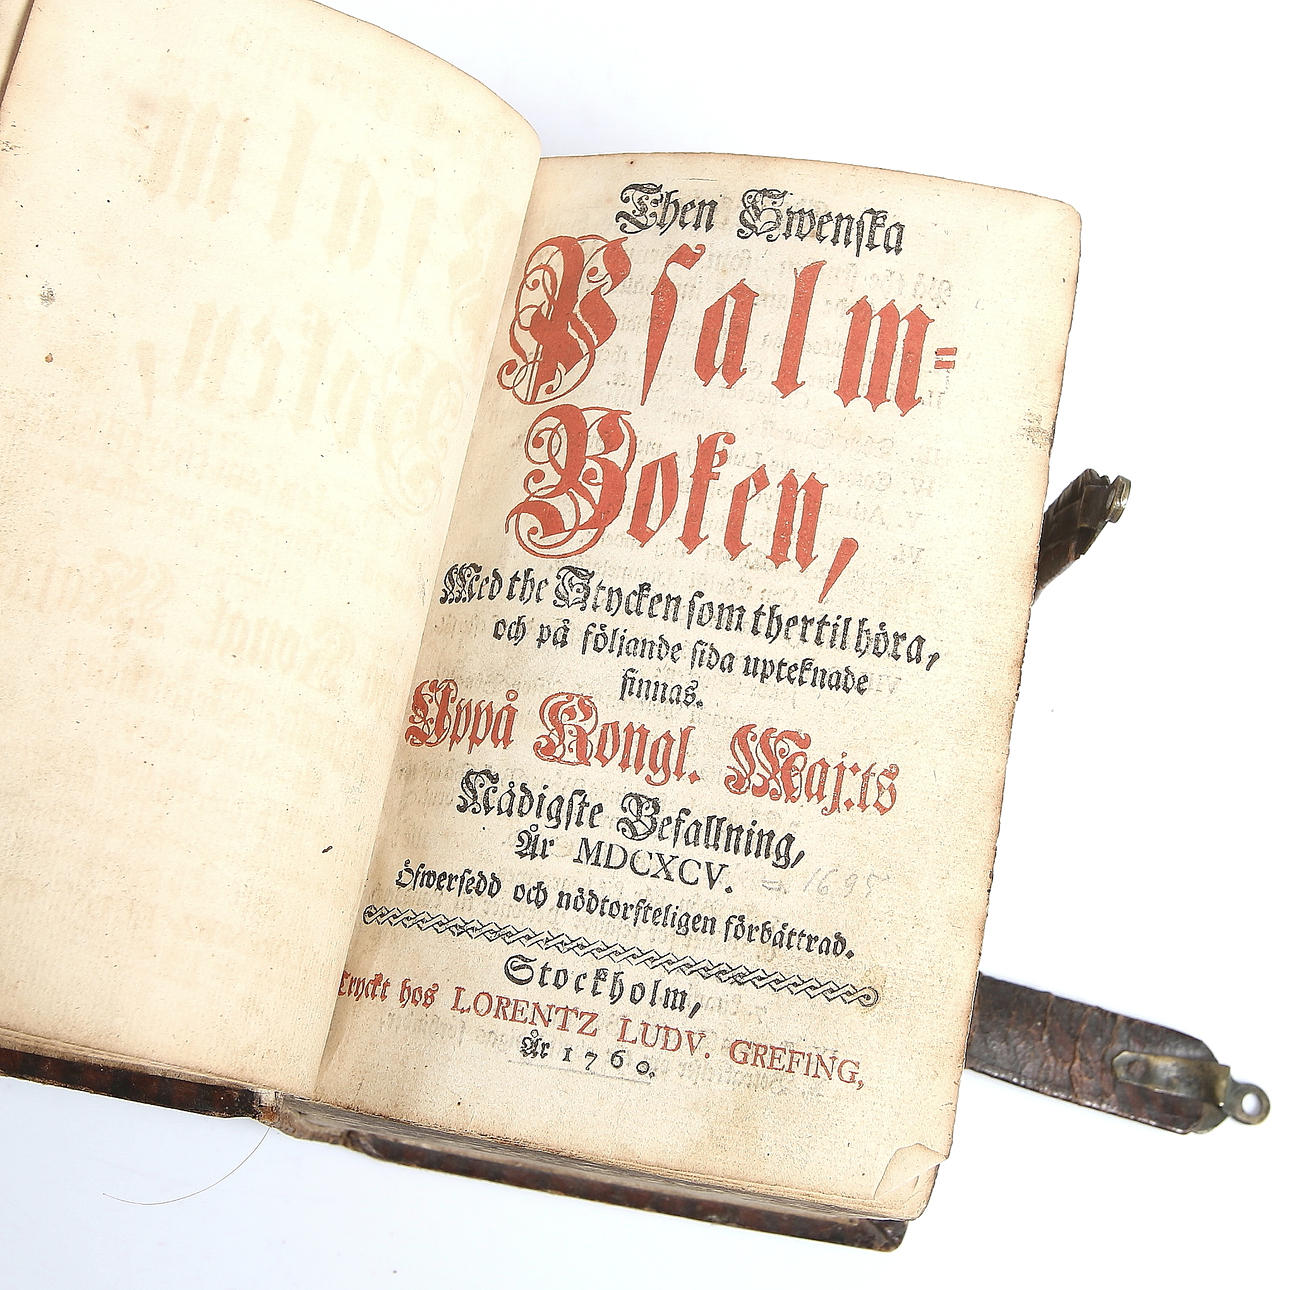 Then Swenska
Psalm-
Boken,
Med the Stycken som thertil höra,
och på följande sida upteknade
finnas.
Uppå Kongl. Maj:ts
Nådigste Befallning,
År MDCXCV. = 1695
Öfwersedd och nödtorfteligen förbättrad.
Stockholm,
Tryckt hos LORENTZ LUDV. GREFING,
År 1760.